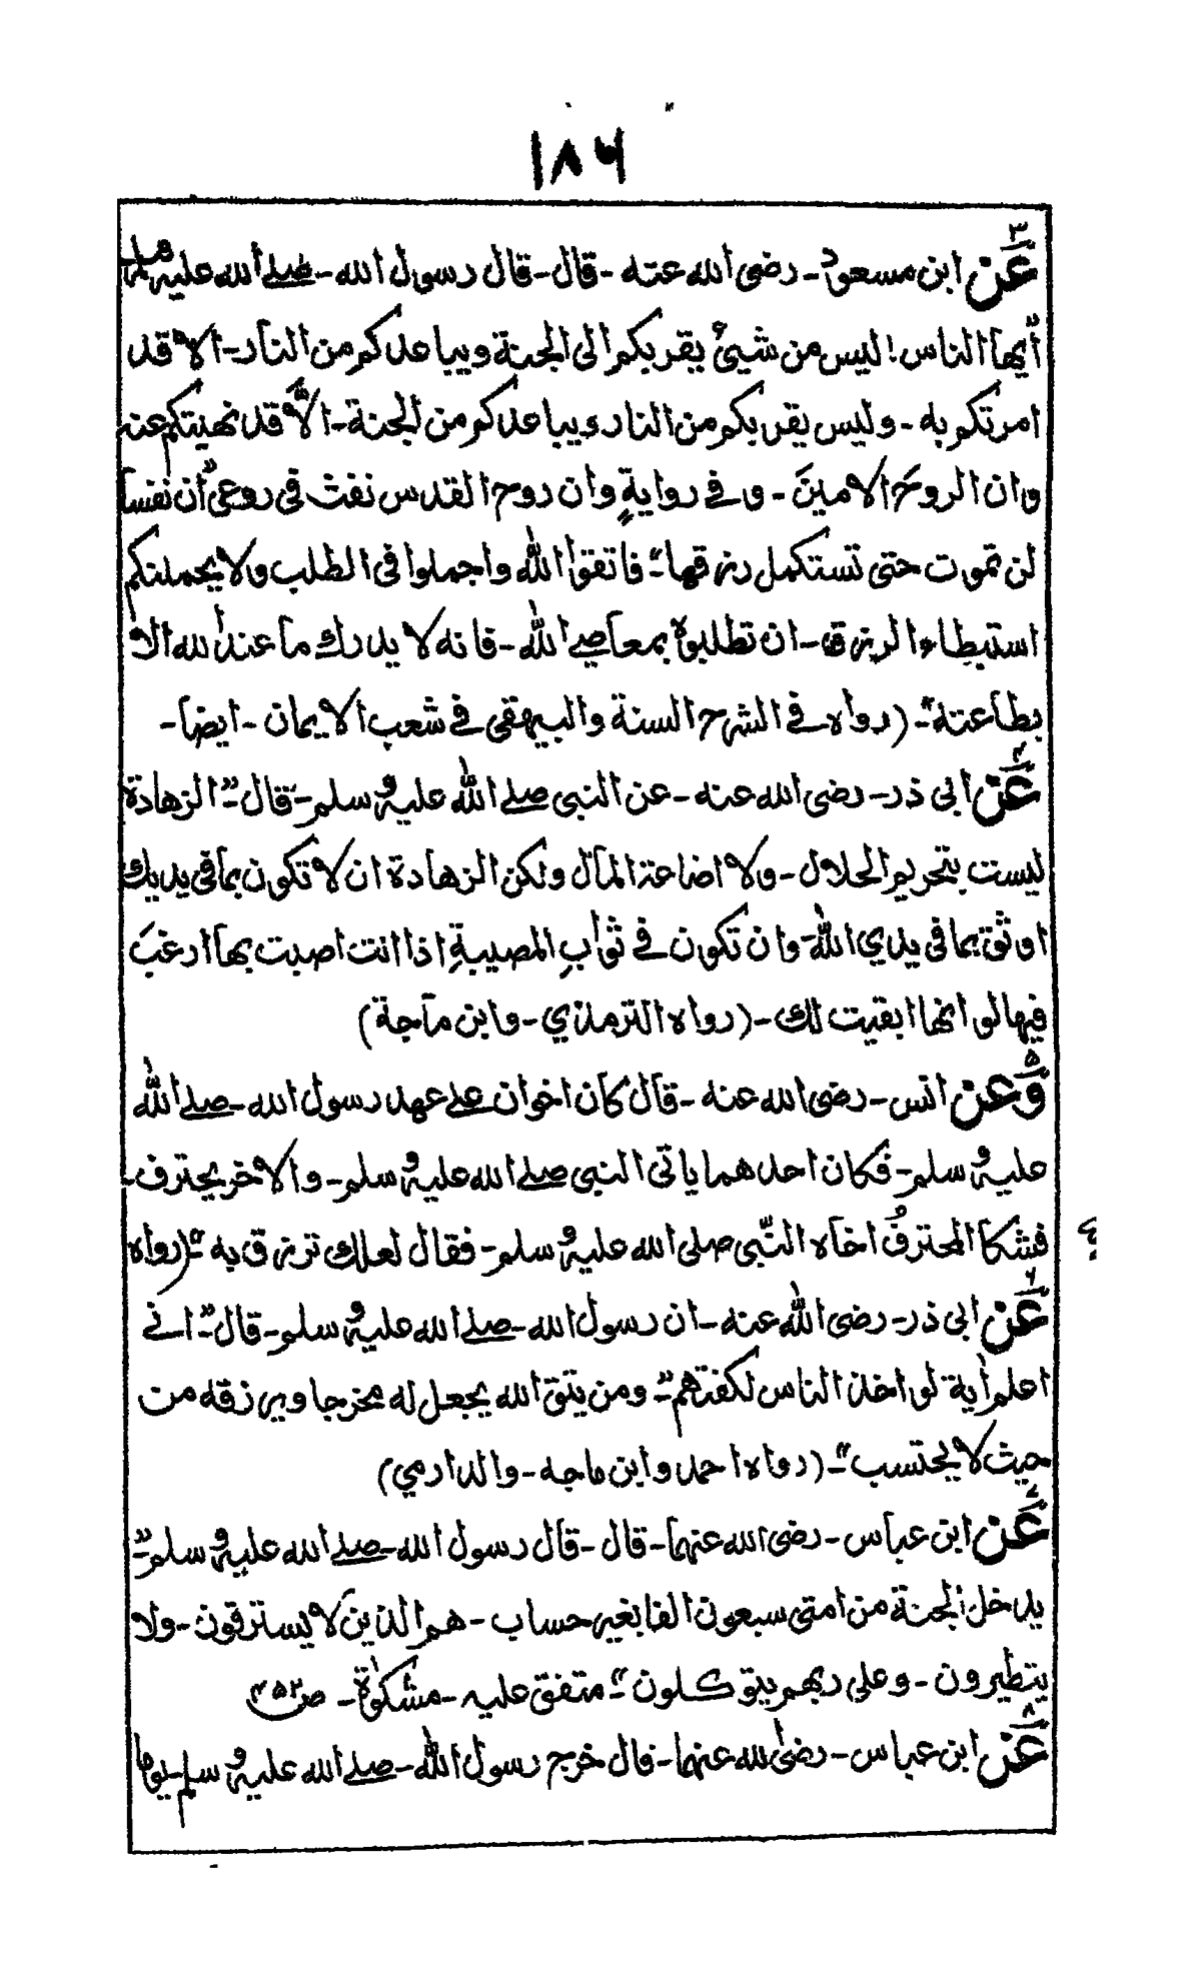 ١٨٦
٣
عن ابن مسعود - رضى الله عنه - قال - قال رسول الله - صلے الله عليه وسلم
أيها الناس! ليس من شيئ يقربكم الى الجنة ويباعدكم من النار - الا قد
امرتكم به - وليس يقربكم من النار ويباعدكم من الجنة - الا قد نهيتكم عنه
وان الروح الامين - وفے رواية وان روح القدس نفث فى روعى ان نفسا
لن تموت حتى تستكمل رزقها" فاتقوا الله واجملوا فى الطلب ولا يحملنكم
استبطاء الرزق - ان تطلبوه بمعاصے الله - فانه لا يدرك ما عند الله الا
بطاعته" - (رواه فے الشرح السنة والبيهقى فے شعب الايمان - ايضا -
٤
عن ابى ذر - رضى الله عنه - عن النبى صلے الله عليه وسلم - قال - "الزهادة
ليست بتحريم الحلال - ولا اضاعة المال ولكن الزهادة ان لا تكون بما فى يديك
اوثق بما فى يدي الله - وان تكون فے ثواب المصيبة اذا انت اصبت بها ارغب
فيها لو انها ابقيت لك - (رواه الترمذي - وابن ماجة)
٥
وعن انس - رضى الله عنه - قال كان اخوان علے عهد رسول الله - صلے الله
عليه وسلم - فكان احدهما ياتى النبى صلے الله عليه وسلم - والاخر يحترف -
فشكا المحترف اخاه النبى صلى الله عليه وسلم - فقال لعلك ترزق به" (رواه
؟
٦
عن ابى ذر - رضى الله عنه - ان رسول الله - صلے الله عليه وسلم - قال - "انے
اعلم اية لو اخذ الناس لكفتهم" - ومن يتق الله يجعل له مخرجا ويرزقه من
حيث لا يحتسب" - (رواه احمد وابن ماجه - والدارمي)
٧
عن ابن عباس - رضى الله عنهما - قال - قال رسول الله - صلے الله عليه وسلم - "
يدخل الجنة من امتى سبعون الفا بغير حساب - هم الذين لا يسترقون - ولا
يتطيرون - وعلى ربهم يتوكلون" - متفق عليه - مشكوٰة - ص ٤٥٢
٨
عن ابن عباس - رضى الله عنهما - قال خرج رسول الله - صلے الله عليه وسلم - يوما